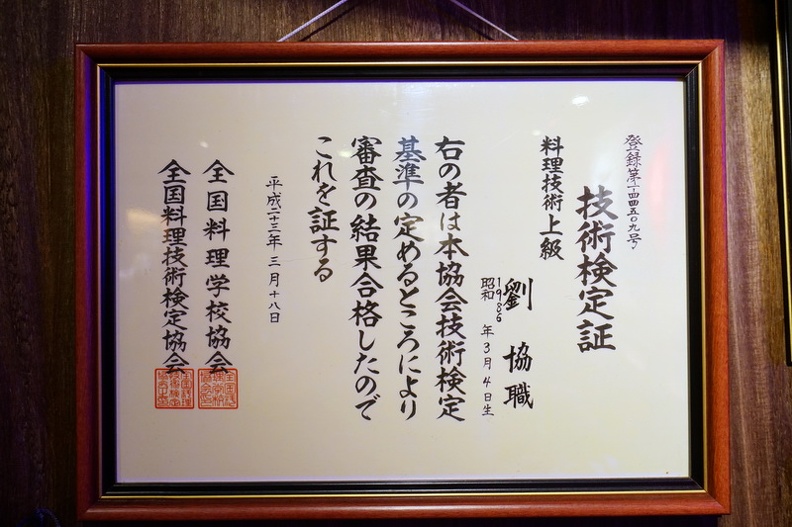 登録第一四四五〇九号
技術検定証
料理技術上級
劉 協職
昭和 1986年3月4日生
右の者は本協会技術検定
基準の定めるところにより
審査の結果合格したので
これを証する
平成二十三年 三月十八日
全国料理学校協会
全国料理技術検定協会